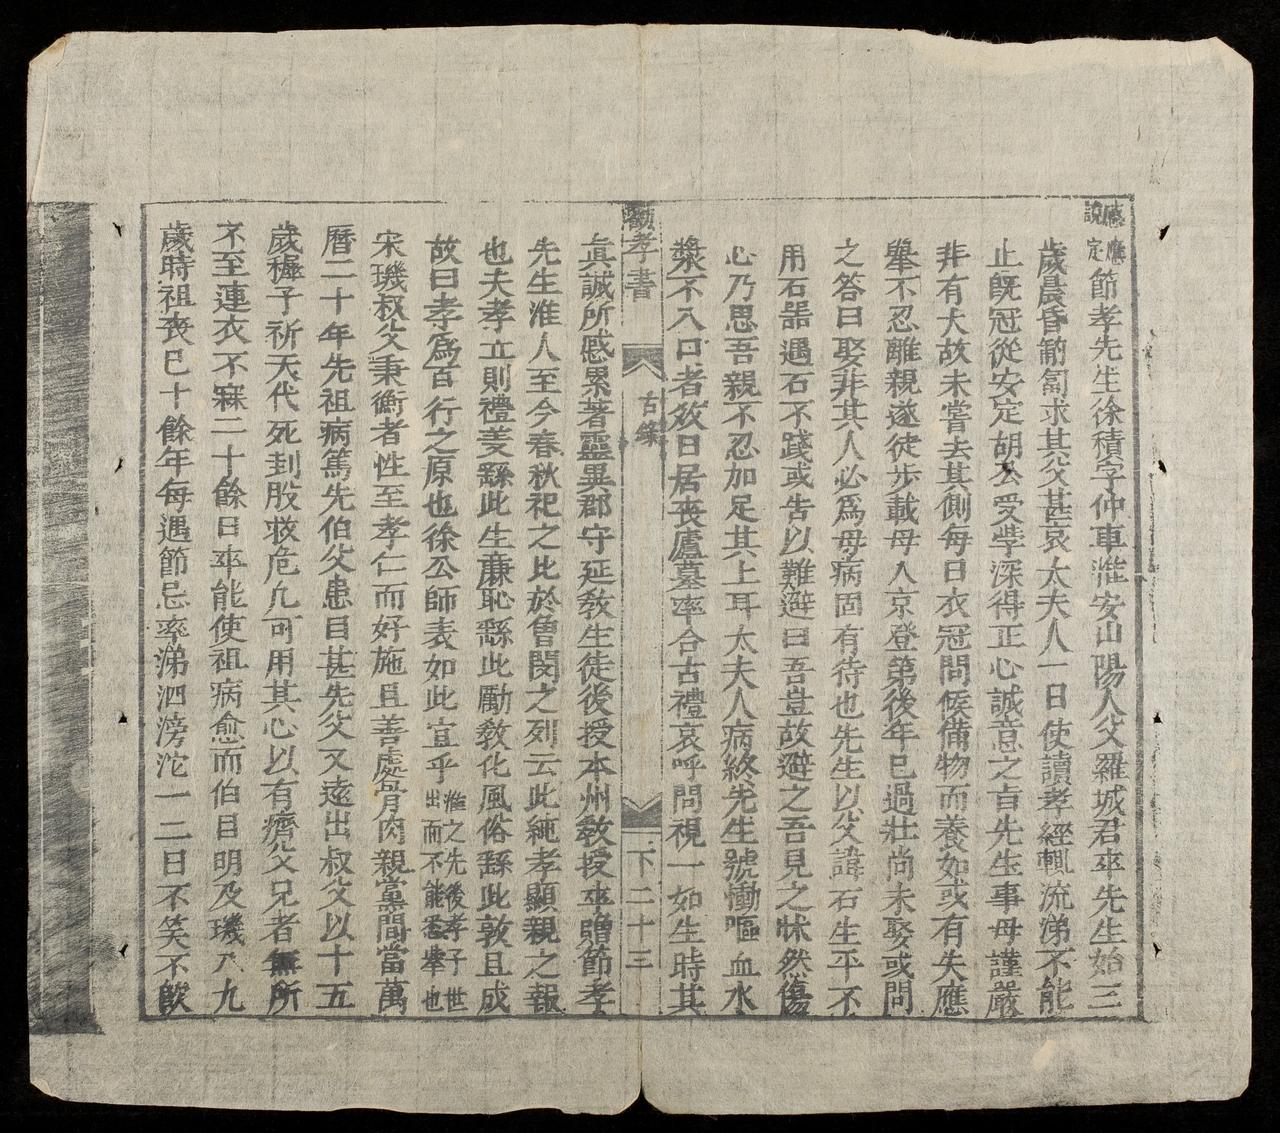 節孝先生徐積字仲車淮安山陽人父羅城君卒先生始三
歲晨昏匍匐求其父甚哀太夫人一日使讀孝經輒流涕不能
止旣冠從安定胡公受學深得正心誠意之旨先生事母謹嚴
非有大故未嘗去其側每日衣冠問候備物而養如或有失應
舉不忍離親遂徒步載母入京登第後年已過壯尚未娶或問
之答曰娶非其人必爲母病固有待也先生以父諱石生平不
用石器遇石不踐或吿以難避曰吾豈故避之吾見之怵然傷
心乃思吾親不忍加足其上耳太夫人病終先生號慟嘔血水
漿不入口者數日居喪廬墓率合古禮哀呼問視一如生時其
勸孝書　古錄　下二十三
眞誠所感累著靈異郡守延敎生徒後授本州敎授卒贈節孝
先生淮人至今春秋祀之比於曾閔之列云此純孝顯親之報
也夫孝立則禮義繇此生廉恥繇此勵敎化風俗繇此敦且成
故曰孝爲百行之原也徐公師表如此宜乎淮之先後孝子世出而不能悉舉也
宋璣叔父秉衡者性至孝仁而好施且善處骨肉親黨間當萬
曆二十年先祖病篤先伯父患目甚先父又遠出叔父以十五
歲穉子祈天代死刲股救危凡可用其心以有濟父兄者無所
不至連衣不寐二十餘日卒能使祖病愈而伯目明及璣八九
歲時祖喪已十餘年每遇節忌率涕泗滂沱一二日不笑不飮